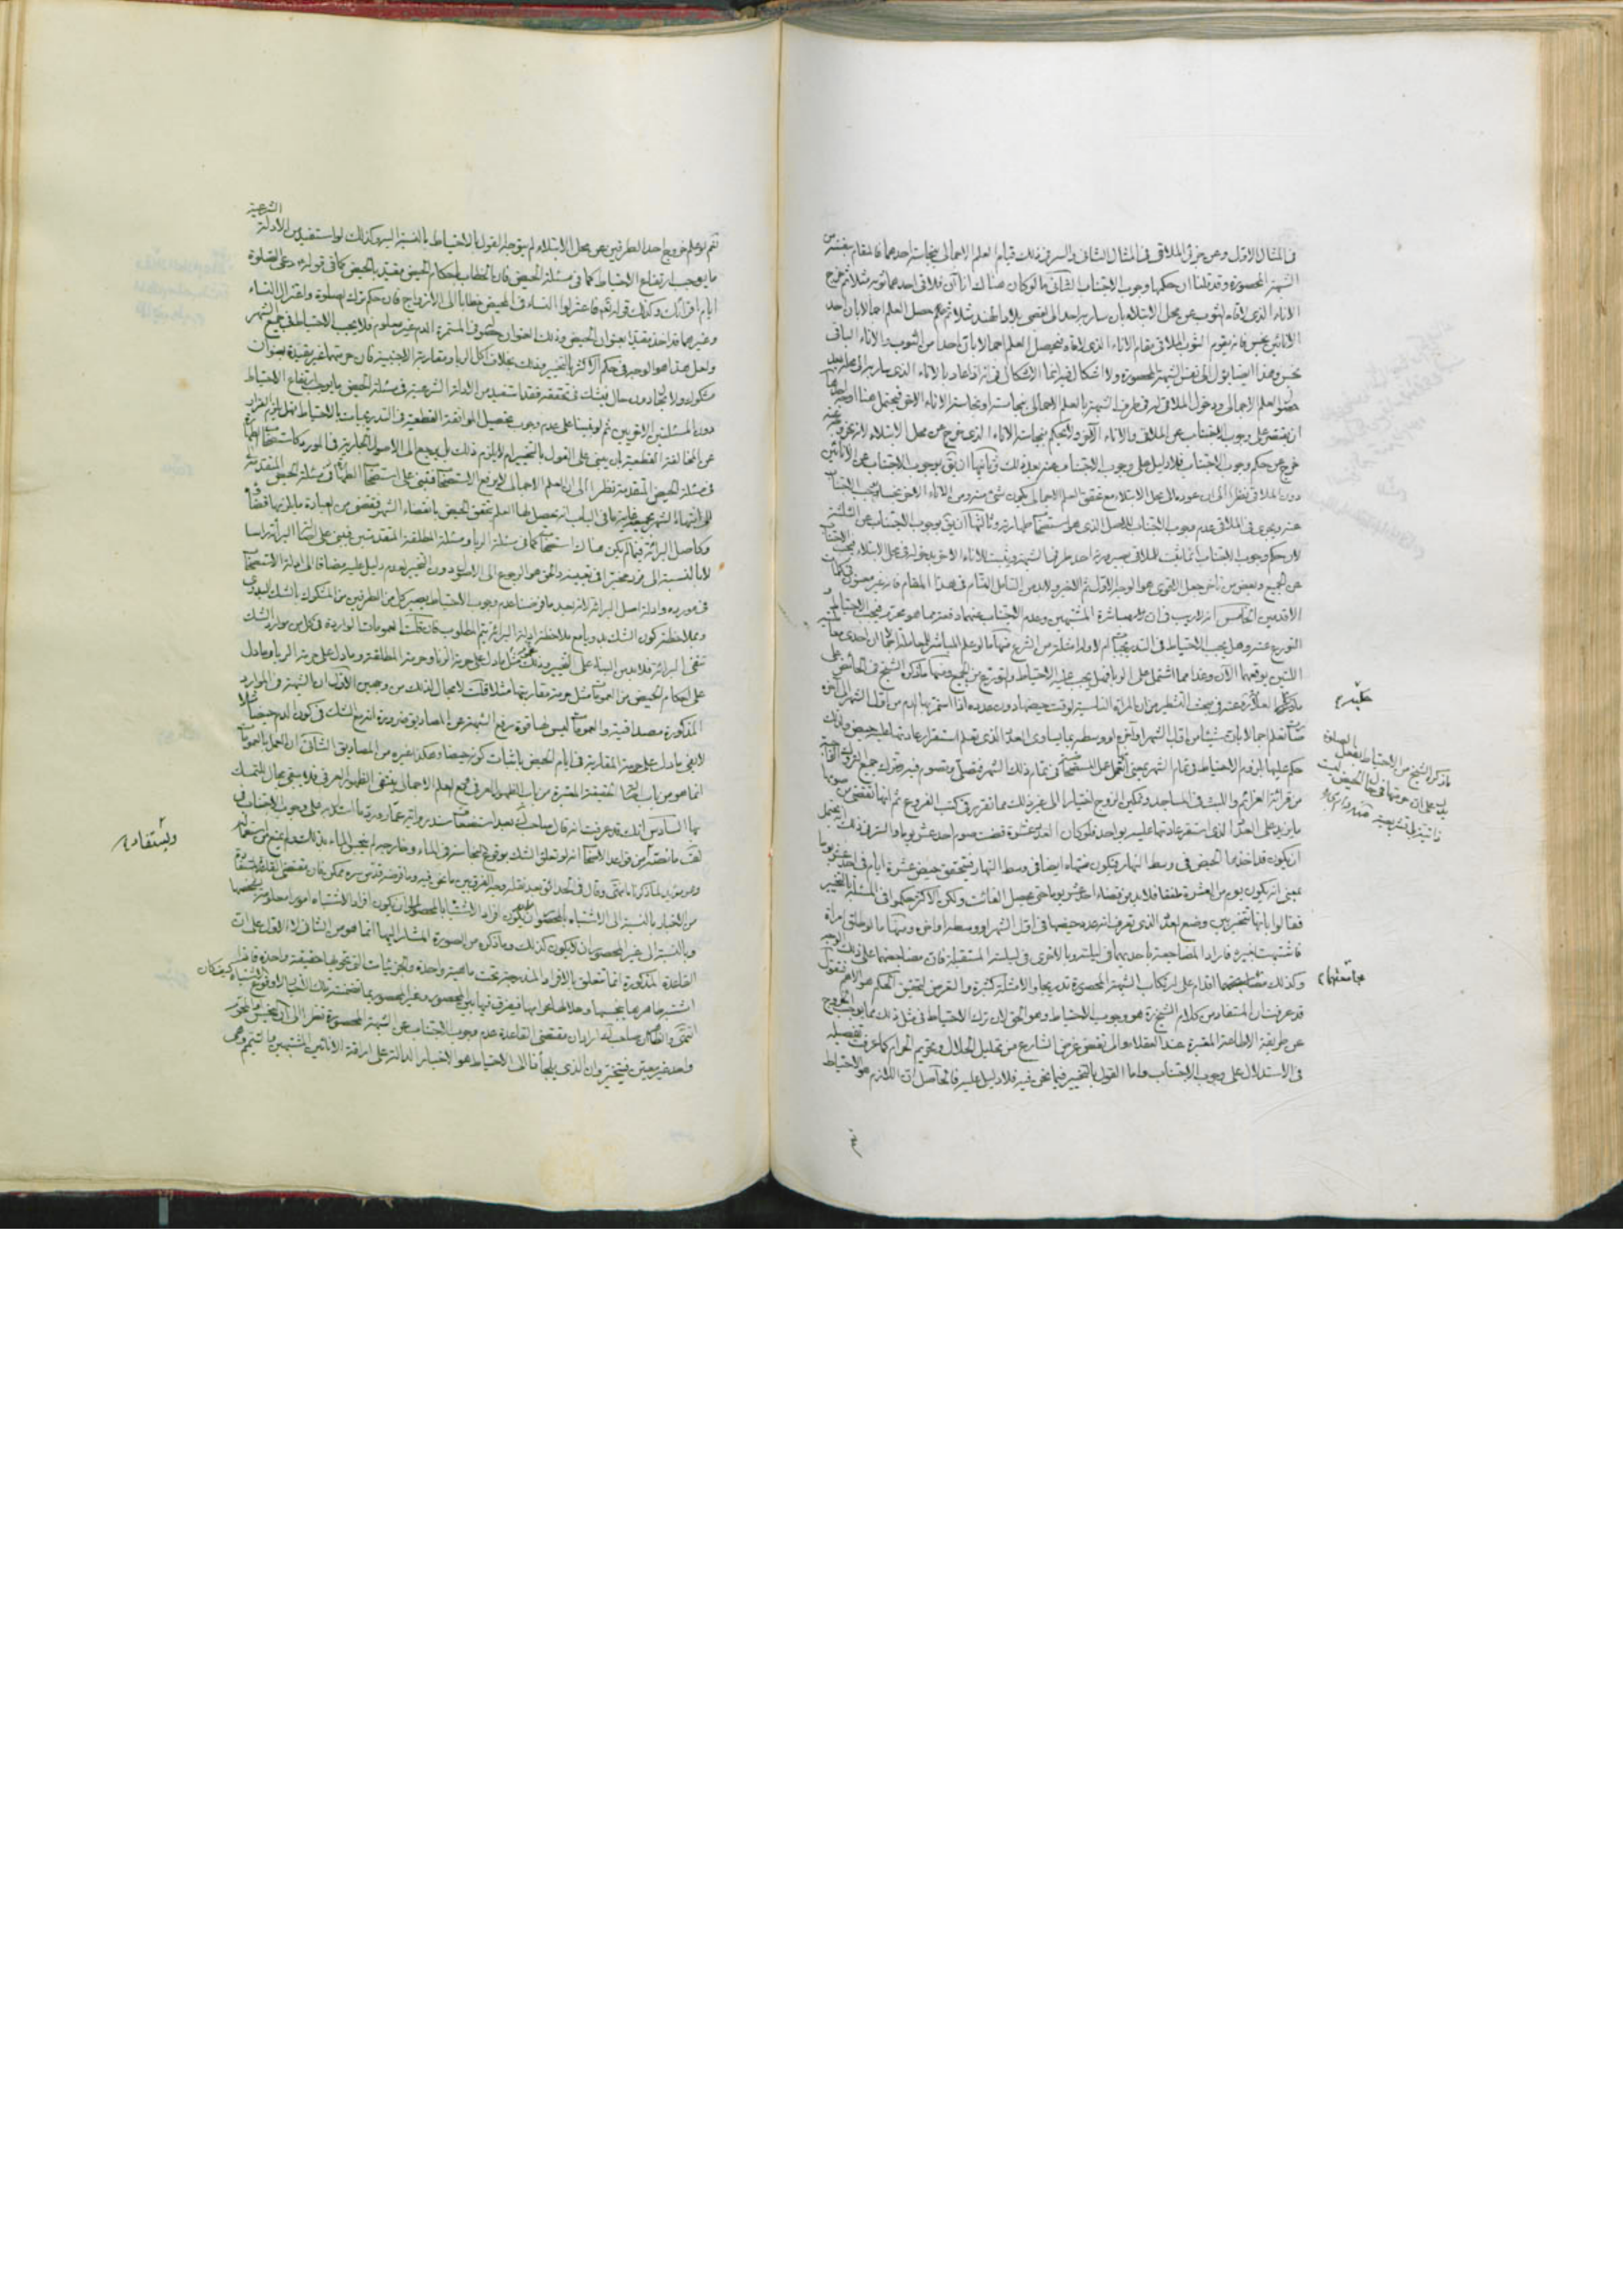 في المثال الاول وعن جزئي الملاقي في المثال الثاني والسر في ذلك قيام العلم الاجمالي بنجاسة احدهما فالمقام بنفسه من
الشبهة المحصورة وقد قلنا ان حكمها وجوب الاجتناب الثاني ما لو كان هناك اناآن فلاقى احدهما ثوبه مثلا ثم خرج
الاناء الذي لاقاه الثوب عن محل الابتلاء بان سار به احد الى اقصى بلاد الهند مثلا ثم حصل العلم اجمالا بان احد
الانائين نجس فانه يقوم الثوب الملاقي مقام الاناء الذي لاقاه فيحصل العلم اجمالا بان احدا من الثوب والاناء الباقي
نجس وهذا ايضا يؤل الى نفس الشبهة المحصورة ولا اشكال فيه انما الاشكال في انه اذا عاد بالاناء الذي سار به الى محله بعد
العلم الاجمالي ودخول الملاقي له في طرف الشبهة بالعلم الاجمالي بنجاسته او نجاسة الاناء الاخر فيحتمل هنا اوجه احدها
ان يقتصر على وجوب الاجتناب عن الملاقي والاناء الاخر ولا يحكم بنجاسة الاناء الذي خرج عن محل الابتلاء لانه
خرج عن حكم وجوب الاجتناب فلا دليل على وجوب الاجتناب عنه بعد ذلك ثانيها ان يق بوجوب الاجتناب عن الانائين
دون الملاقي نظرا الى ان عوده الى محل الابتلاء مع تحقق العلم الاجمالي بكون شيء منه ومن الاناء الاخر نجسا يوجب الاجتناب
عنه ويجري في الملاقي عدم وجوب الاجتناب للاصل الذي هو استصحاب طهارته وثالثها ان يق بوجوب الاجتناب عن الثلثة
لان حكم وجوب الاجتناب انما يثبت للملاقي بصيرورة احد طرفي الشبهة ويثبت للاناء الاخر بدخوله في محل الابتلاء فيجب الاجتناب
عن الجميع وبعض من تاخر جعل اقوى هو الوجه الاول ثم الاخير ولا بد من التامل التام في هذا المقام فانه غير معنون في كلمات
الاقدمين الخامس انه لا ريب في ان مباشرة المشتبهين وعدم الاجتناب عنهما دفعة مما هو محرم فيجب الاحتياط و
التورع عنه وهل يجب الاحتياط في التدريجيات ام لا وله امثلة من الشرع منها ما لو علم المباشر للمعاملة اجمالا ان احدى معاملتيه
اللتين يوقعهما الان وغدا مما اشتمل على الربا فهل يجب عليه الاحتياط والتورع عن الجميع ومنها ما ذكره الشيخ في الحائض على
حكم عليها بلزوم الاحتياط في تمام الشهر بمعنى العمل على الاستحاضة في تمام ذلك الشهر فتصلي وتصوم فيه وتترك جميع تروك الحائض
من قرائة العزائم واللبث في المساجد وتمكين الزوج اختيارا الى غير ذلك مما تقرر في كتب الفروع ثم انها تقضي من صومها
ما يزيد على العدد الذي استقر عادتها عليه بيوم واحد فلو كان العدد عشرة قضت صوم احد عشر يوما والسر في ذلك انه يحتمل
ان يكون قد اخذها الحيض في وسط النهار فيكون منتهاه ايضا في وسط النهار فيتحقق حيض عشرة ايام في احد عشر يوما
بمعنى انه يكون يوم من العشرة ملفقا فلا بد من قضاء احد عشر يوما حتى يحصل الفائت ولكن الاكثر حكموا في المسئلة بالتخيير
فقالوا بانها تتخير بين وضع العدد الذي تعرف انه عدد حيضها في اول الشهر او وسطه او اخره ومنها ما لو طلق امرأة
فاشتبهت بغيره فاراد المضاجعة باحديهما في ليلة وبالاخرى في ليلة المستقبلة فان مضاجعتهما على ذلك الوجه
وكذلك اقدام على ارتكاب الشبهة المحصورة تدريجا والامثلة كثيرة والغرض تحقيق الحكم هو الاهم فنقول
قد عرفت ان المستفاد من كلام الشيخ ره هو وجوب الاحتياط وهو الحق لان ترك الاحتياط في مثل ذلك مما يوجب الخروج
عن طريقة الاطاعة المعتبرة عند العقلاء والى نقض غرض الشارع من تحليل الحلال وتحريم الحرام كما عرفت تفصيله
في الاستدلال على وجوب الاجتناب واما القول بالتخيير فيما نحن فيه فلا دليل عليه فالحاصل ان اللازم هو الاحتياط
ما ذكره الشيخ من الاحتياط بفعل الصلوة
يدل على ان حرمتها في حال الحيض ليست
ذاتية بل تشريعية
مجامعتهما
نعم لو علم خروج احد الطرفين عن محل الابتلاء لم يتوجه القول بالاحتياط بالنسبة اليه وكذلك لو استفيد من الادلة الشرعية
ما يوجب ارتفاع الاحتياط كما في مسئلة الحيض فان الخطاب باحكام الحيض مقيد بالحيض كما في قوله دعي الصلوة
ايام اقرائك وكذلك قوله تعم فاعتزلوا النساء في المحيض خطابا الى الازواج فان حكم ترك الصلوة واعتزال النساء
وغيرهما قد اخذ مقيدا بعنوان الحيض وذلك العنوان في المستمرة الدم غير معلوم فلا يجب الاحتياط في جميع الشهر
ولعل هذا هو الوجه في حكم الاكثر بالتخيير وذلك بخلاف اكل الربا ومقاربة الاجنبية فان حرمتهما غير مقيدة بعنوان
مشكوك ولا اتحاد دون حال فيشك في تحققه فقد استفيد من الادلة الشرعية في مسئلة الحيض ما يوجب ارتفاع الاحتياط
دون المسئلتين الاخريين ثم لو بنينا على عدم وجوب تحصيل الموافقة القطعية في التدريجيات بالاحتياط فهل يلزم الفرار
عن المخالفة القطعية بان يبنى على القول بالتخيير ام لا يلزم ذلك بل يرجع الى الاصول الجارية في المورد كاستصحاب الطهارة
في مسئلة الحيض المتقدمة نظرا الى ان العلم الاجمالي لا يرفع الاستصحاب فتبنى على استصحاب الطهارة في مسئلة الحيض المتقدمة
الى انتهاء الشهر غاية ما في الباب انه يحصل لها العلم بتحقق الحيض بانقضاء الشهر فتقضي من العبادة ما لزمها قضائه
وكاصل البرائة فيما لم يكن هناك استصحاب كما في مسئلة الربا ومسئلة المطلقة المتقدمتين فيبنى على اصالة البرائة راسا
لا بالنسبة الى فرد مخير في تعيينه والحق هو الرجوع الى الاصول دون التخيير لعدم دليل عليه مضافا الى ادلة الاستصحاب
في مورده وادلة اصل البرائة لانه بعد ما فرضنا عدم وجوب الاحتياط يصير كل من الطرفين من المشكوك بالشك البدوي
وبملاحظة كون الشك بدويا مع ملاحظة ادلة البرائة يتم المطلوب فان قلت العمومات الواردة في كل من موارد الشك
تنفي البرائة فلا بد من البناء على التخيير وذلك مثل ما دل على حرمة الزنا وحرمة المطلقة وما دل على حرمة الربا وما دل
على احكام الحيض من العمومات مثل حرمة مقاربتها مثلا قلت لا مجال لذلك من وجهين الاول ان الشبهة في الموارد
المذكورة مصداقية والعمومات ليس لها قوة رفع الشبهة عن المصاديق ضرورة انه مع الشك في كون الدم حيضا مثلا
لا يفي ما دل على حرمة المقاربة في ايام الحيض باثبات كونه حيضا وهكذا غيره من المصاديق الثاني ان العمل بالعمومات
انما هو من باب اصالة الحقيقة المعتبرة من باب الظهور العرفي ومع العلم الاجمالي ينتفي الظهور العرفي فلا يبقى مجال للتمسك
بها السادس انك قد عرفت انه قال صاحب ك بعد استضعاف سند رواية عمار وردّ ما استدل به على وجوب الاجتناب في
لف ما نصه ان من قواعد الاصحاب انه لو تعلق الشك بوقوع النجاسة في الماء وخارجه لم ينجس الماء بذلك ولم يمنع من استعماله
وهو مؤيد لما ذكرناه انتهى وقال في الحدائق بعد نقله وجه الفرق بين ما نحن فيه وما فرضه قدس سره ممكن فان مقتضى القاعدة المستفادة
من الاخبار بالنسبة الى الاشتباه بالمحصور ان يكون افراد الاشتباه امورا معلومة بشخصها
وبالنسبة الى غير المحصور ان لا يكون كذلك وما ذكره من الصورة المشار اليها انما هو من الثاني لا الاول على ان
القاعدة المذكورة انما تتعلق بالافراد المندرجة تحت ماهية واحدة والجزئيات التي تحويها حقيقة واحدة فاذا
اشتبه طاهرها بنجسها وحلالها بحرامها فيفرق فيها بين المحصور وغير المحصور بما تضمنته تلك الاخبار لا وقوع الاشتباه كيف كان
انتهى والظاهر ان صاحب ك اراد ان مقتضى القاعدة عدم وجوب الاجتناب عن الشبهة المحصورة نظرا الى ان
واحد غير معين فيتخير وان الذي يلجأنا الى الاحتياط هو الاخبار الدالة على اراقة الانائين المشتبهين ما يتيمم وهي
ويستفاد